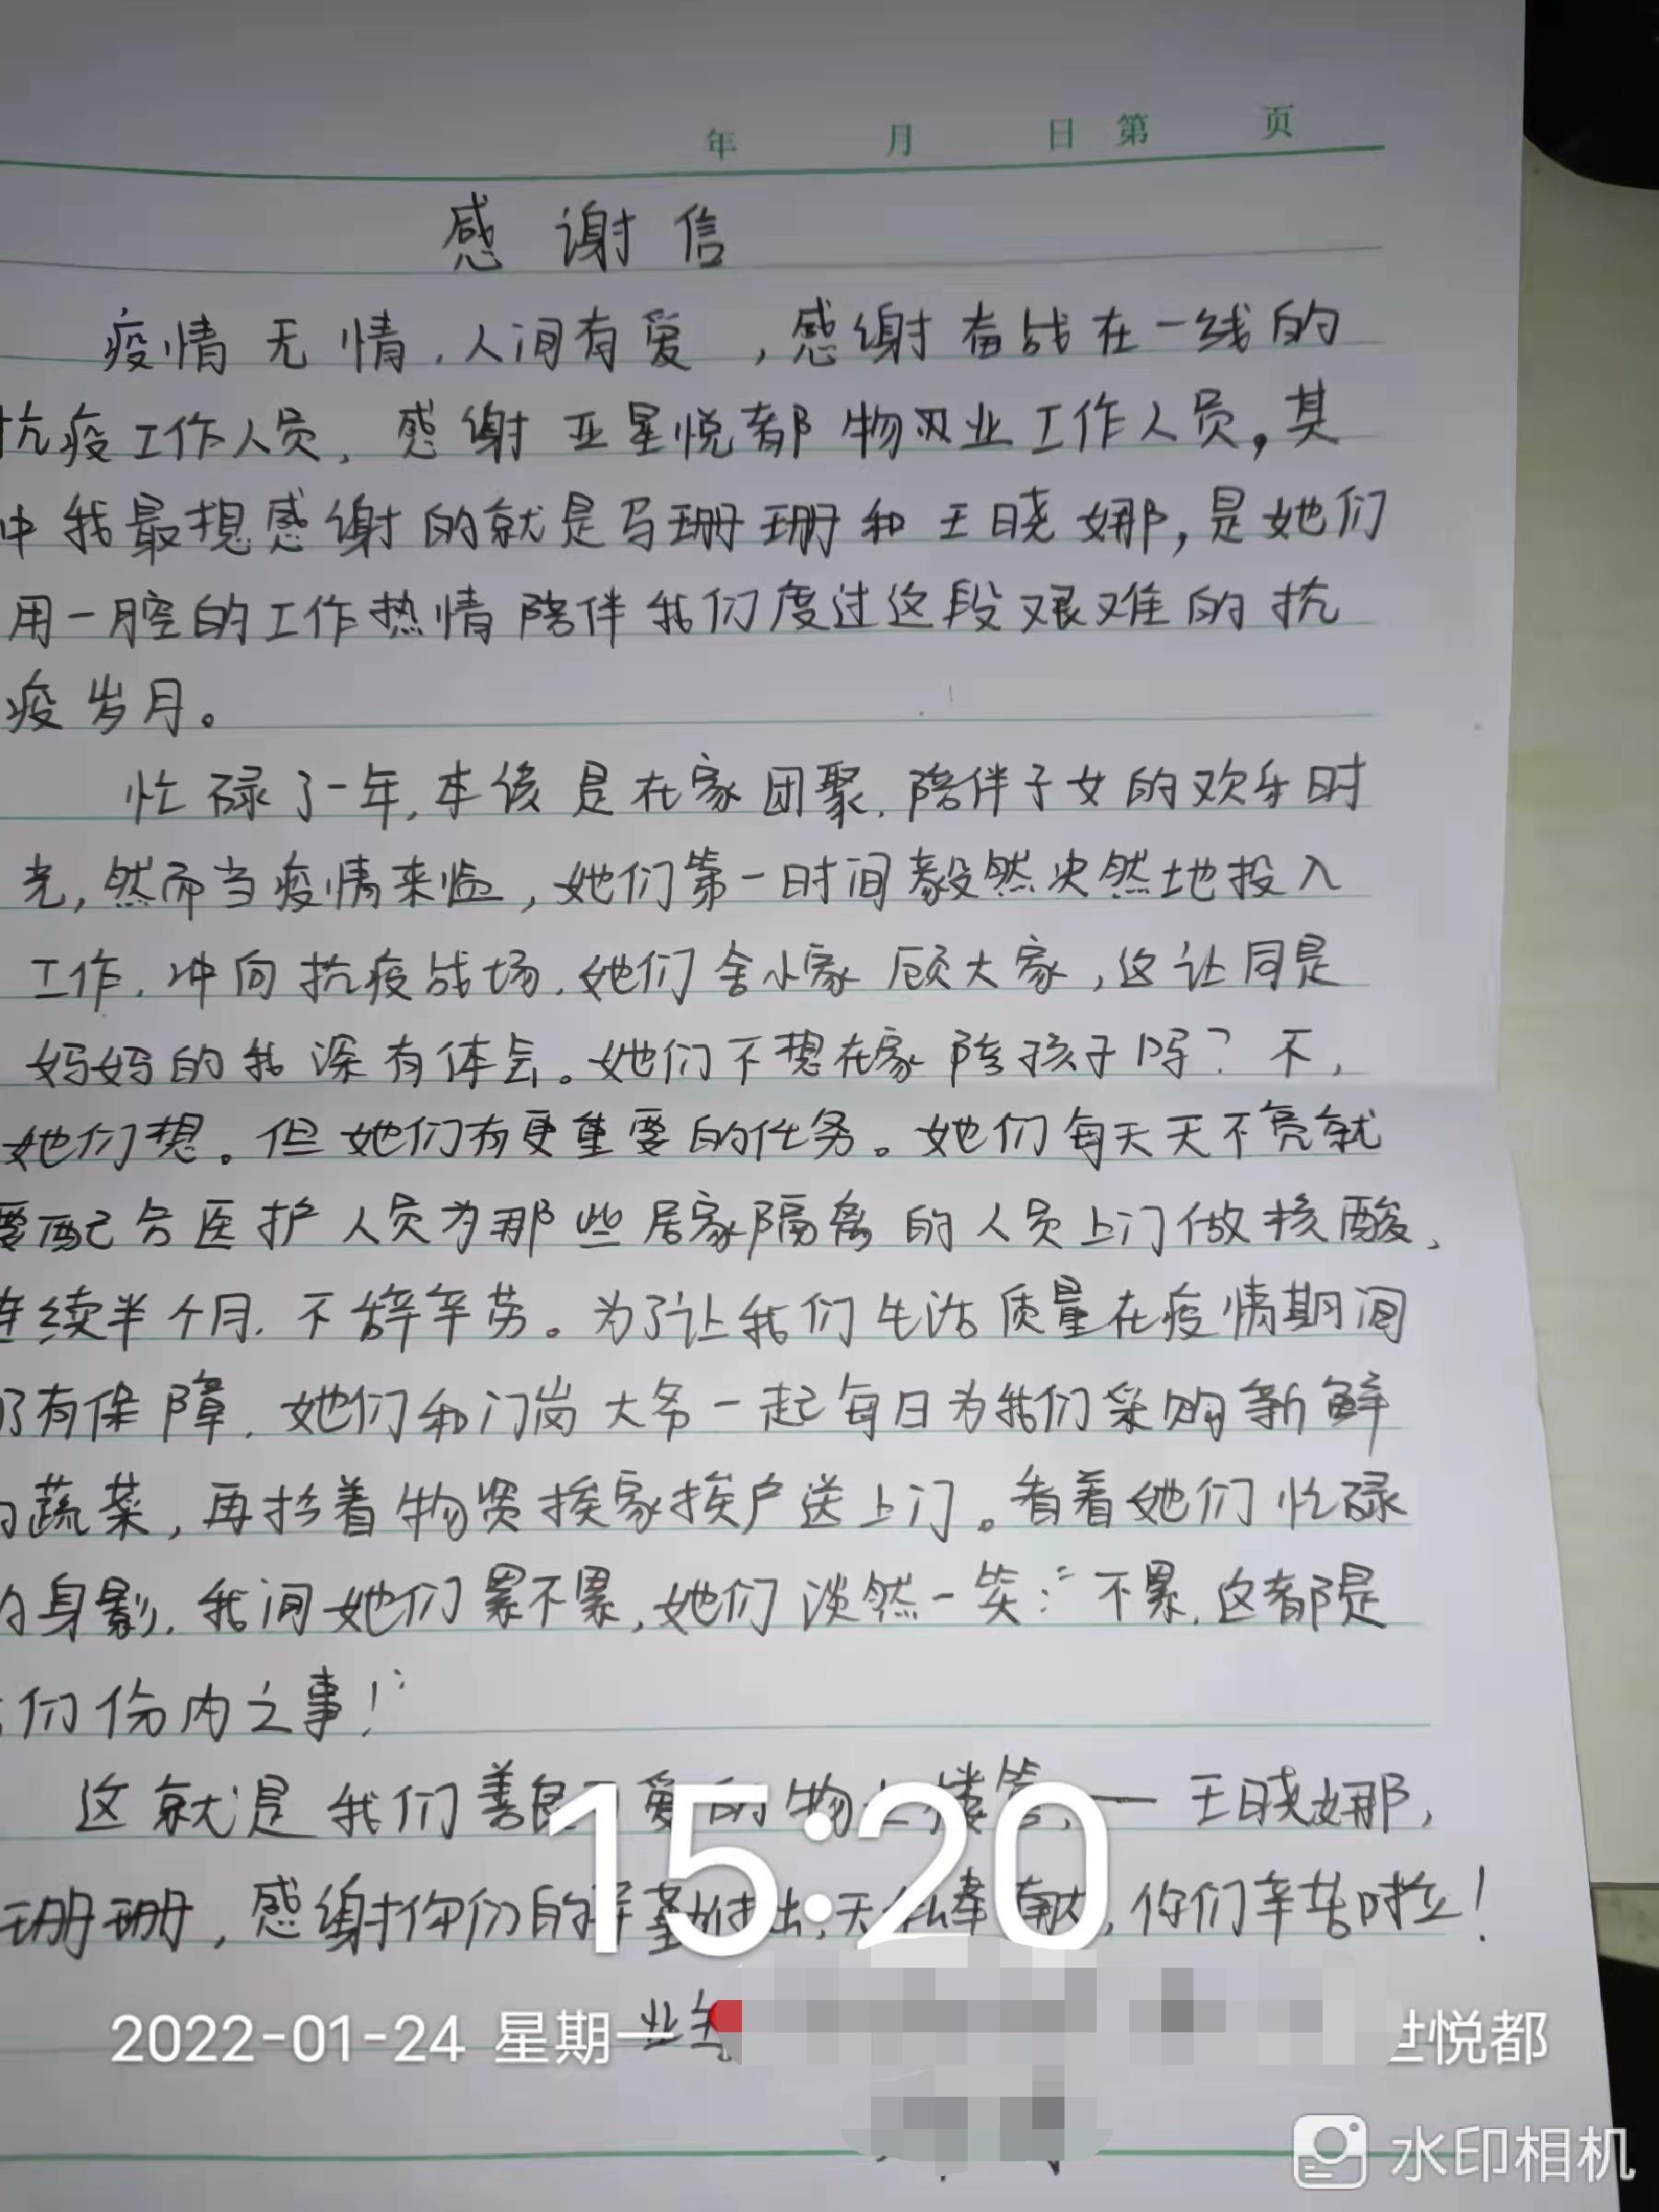 年 月 日 第 页
感谢信
疫情无情,人间有爱,感谢奋战在一线的
抗疫工作人员,感谢亚星悦都物业工作人员,其
中我最想感谢的就是马珊珊和王晓娜,是她们
用一腔的工作热情陪伴我们度过这段艰难的抗
疫岁月。
忙碌了一年,本该是在家团聚,陪伴子女的欢乐时
光,然而当疫情来临,她们第一时间毅然决然地投入
工作,冲向抗疫战场,她们舍小家顾大家,这让同是
妈妈的我深有体会。她们不想在家陪孩子吗?不,
她们想。但她们有更重要的任务。她们每天天不亮就
要配合医护人员为那些居家隔离的人员上门做核酸,
连续半个月,不辞辛劳。为了让我们生活质量在疫情期间
仍有保障,她们和门岗大爷一起每日为我们采购新鲜
的蔬菜,再拎着物资挨家挨户送上门。看着她们忙碌
的身影,我问她们累不累,她们淡然一笑:“不累,这都是
们份内之事!”
这就是我们善良 爱的物业楼管——王晓娜,
珊珊,感谢你们的辛勤付出,无私奉献,你们辛苦啦!
业主
15:20
2022-01-24 星期一
世悦都
水印相机